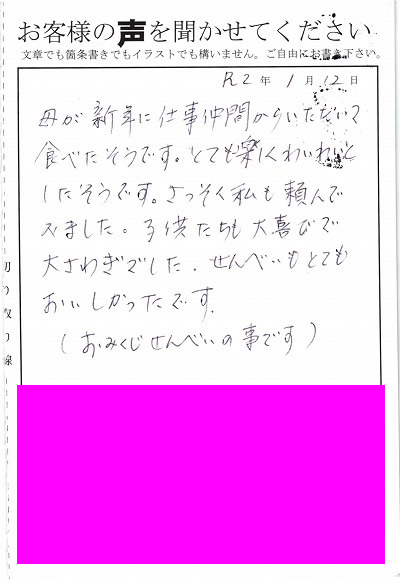 お客様の声を聞かせてください
文章でも箇条書きでもイラストでも構いません。ご自由にお書き下さい。
R2年 1月 12日
母が新年に仕事仲間からいただいて
食べたそうです。とても楽しくわいわいと
したそうです。さっそく私も頼んで
みました。子供たちも大喜びで
大さわぎでした。せんべいもとても
おいしかったです。
(おみくじせんべいの事です)
切り取り線